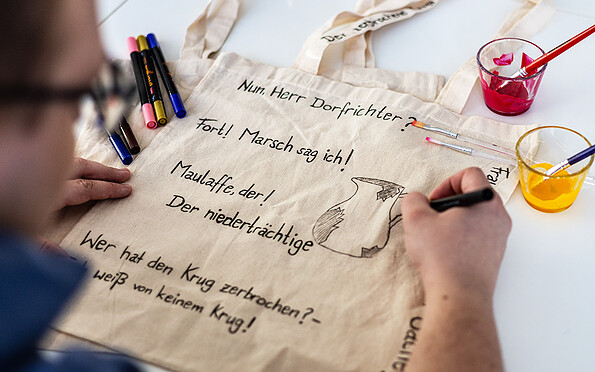 Der zerbrochne
Nun, Herr Dorfrichter?
Fort! Marsch sag ich!
Maulaffe, der!
Der niederträchtige
Wer hat den Krug zerbrochen?-
weiß von keinem Krug!